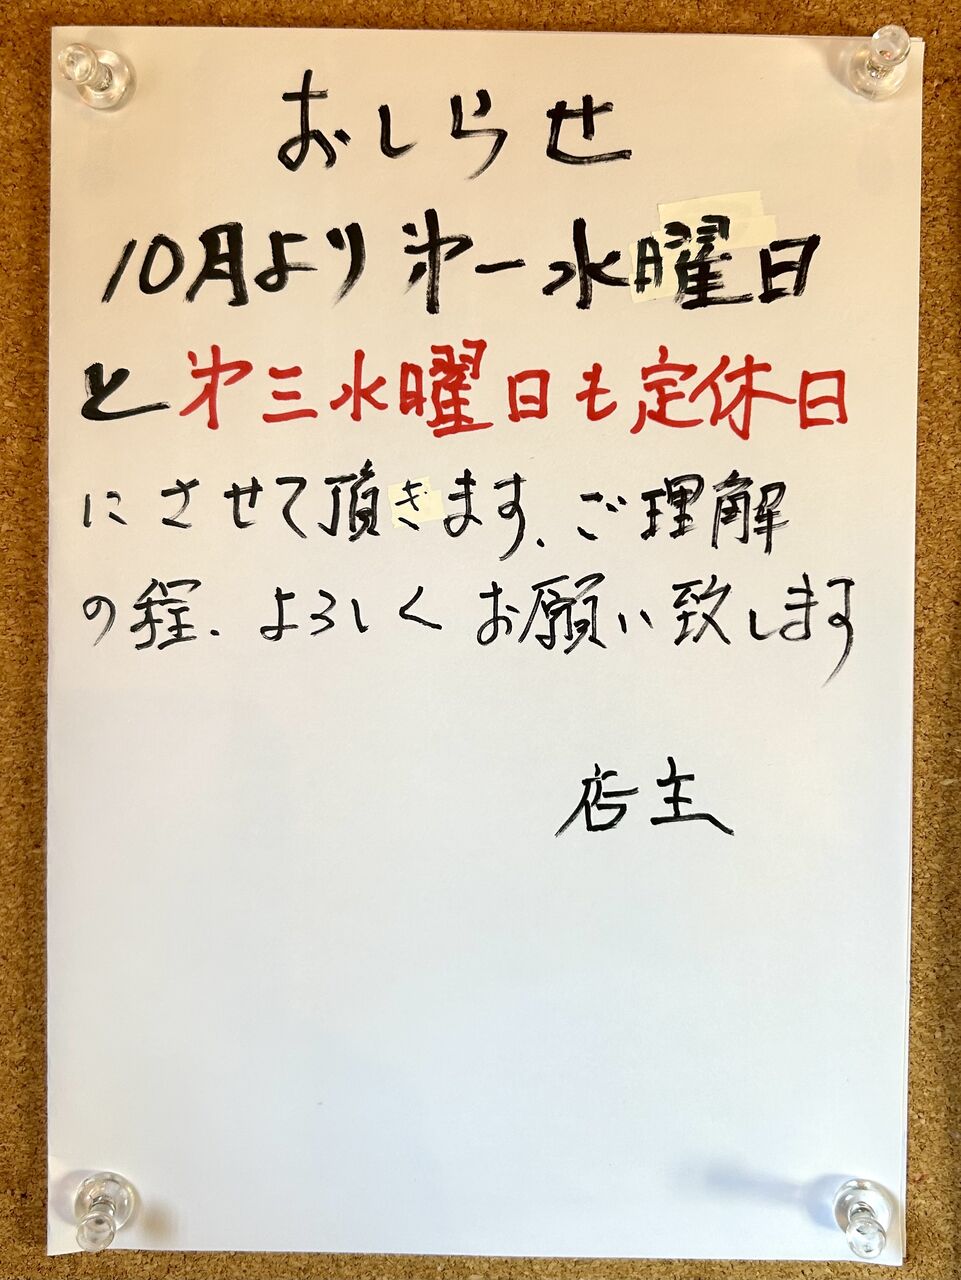 おしらせ
10月より㐧一水曜日
と㐧三水曜日も定休日
にさせて頂きます、ご理解
の程、よろしくお願い致します
店主